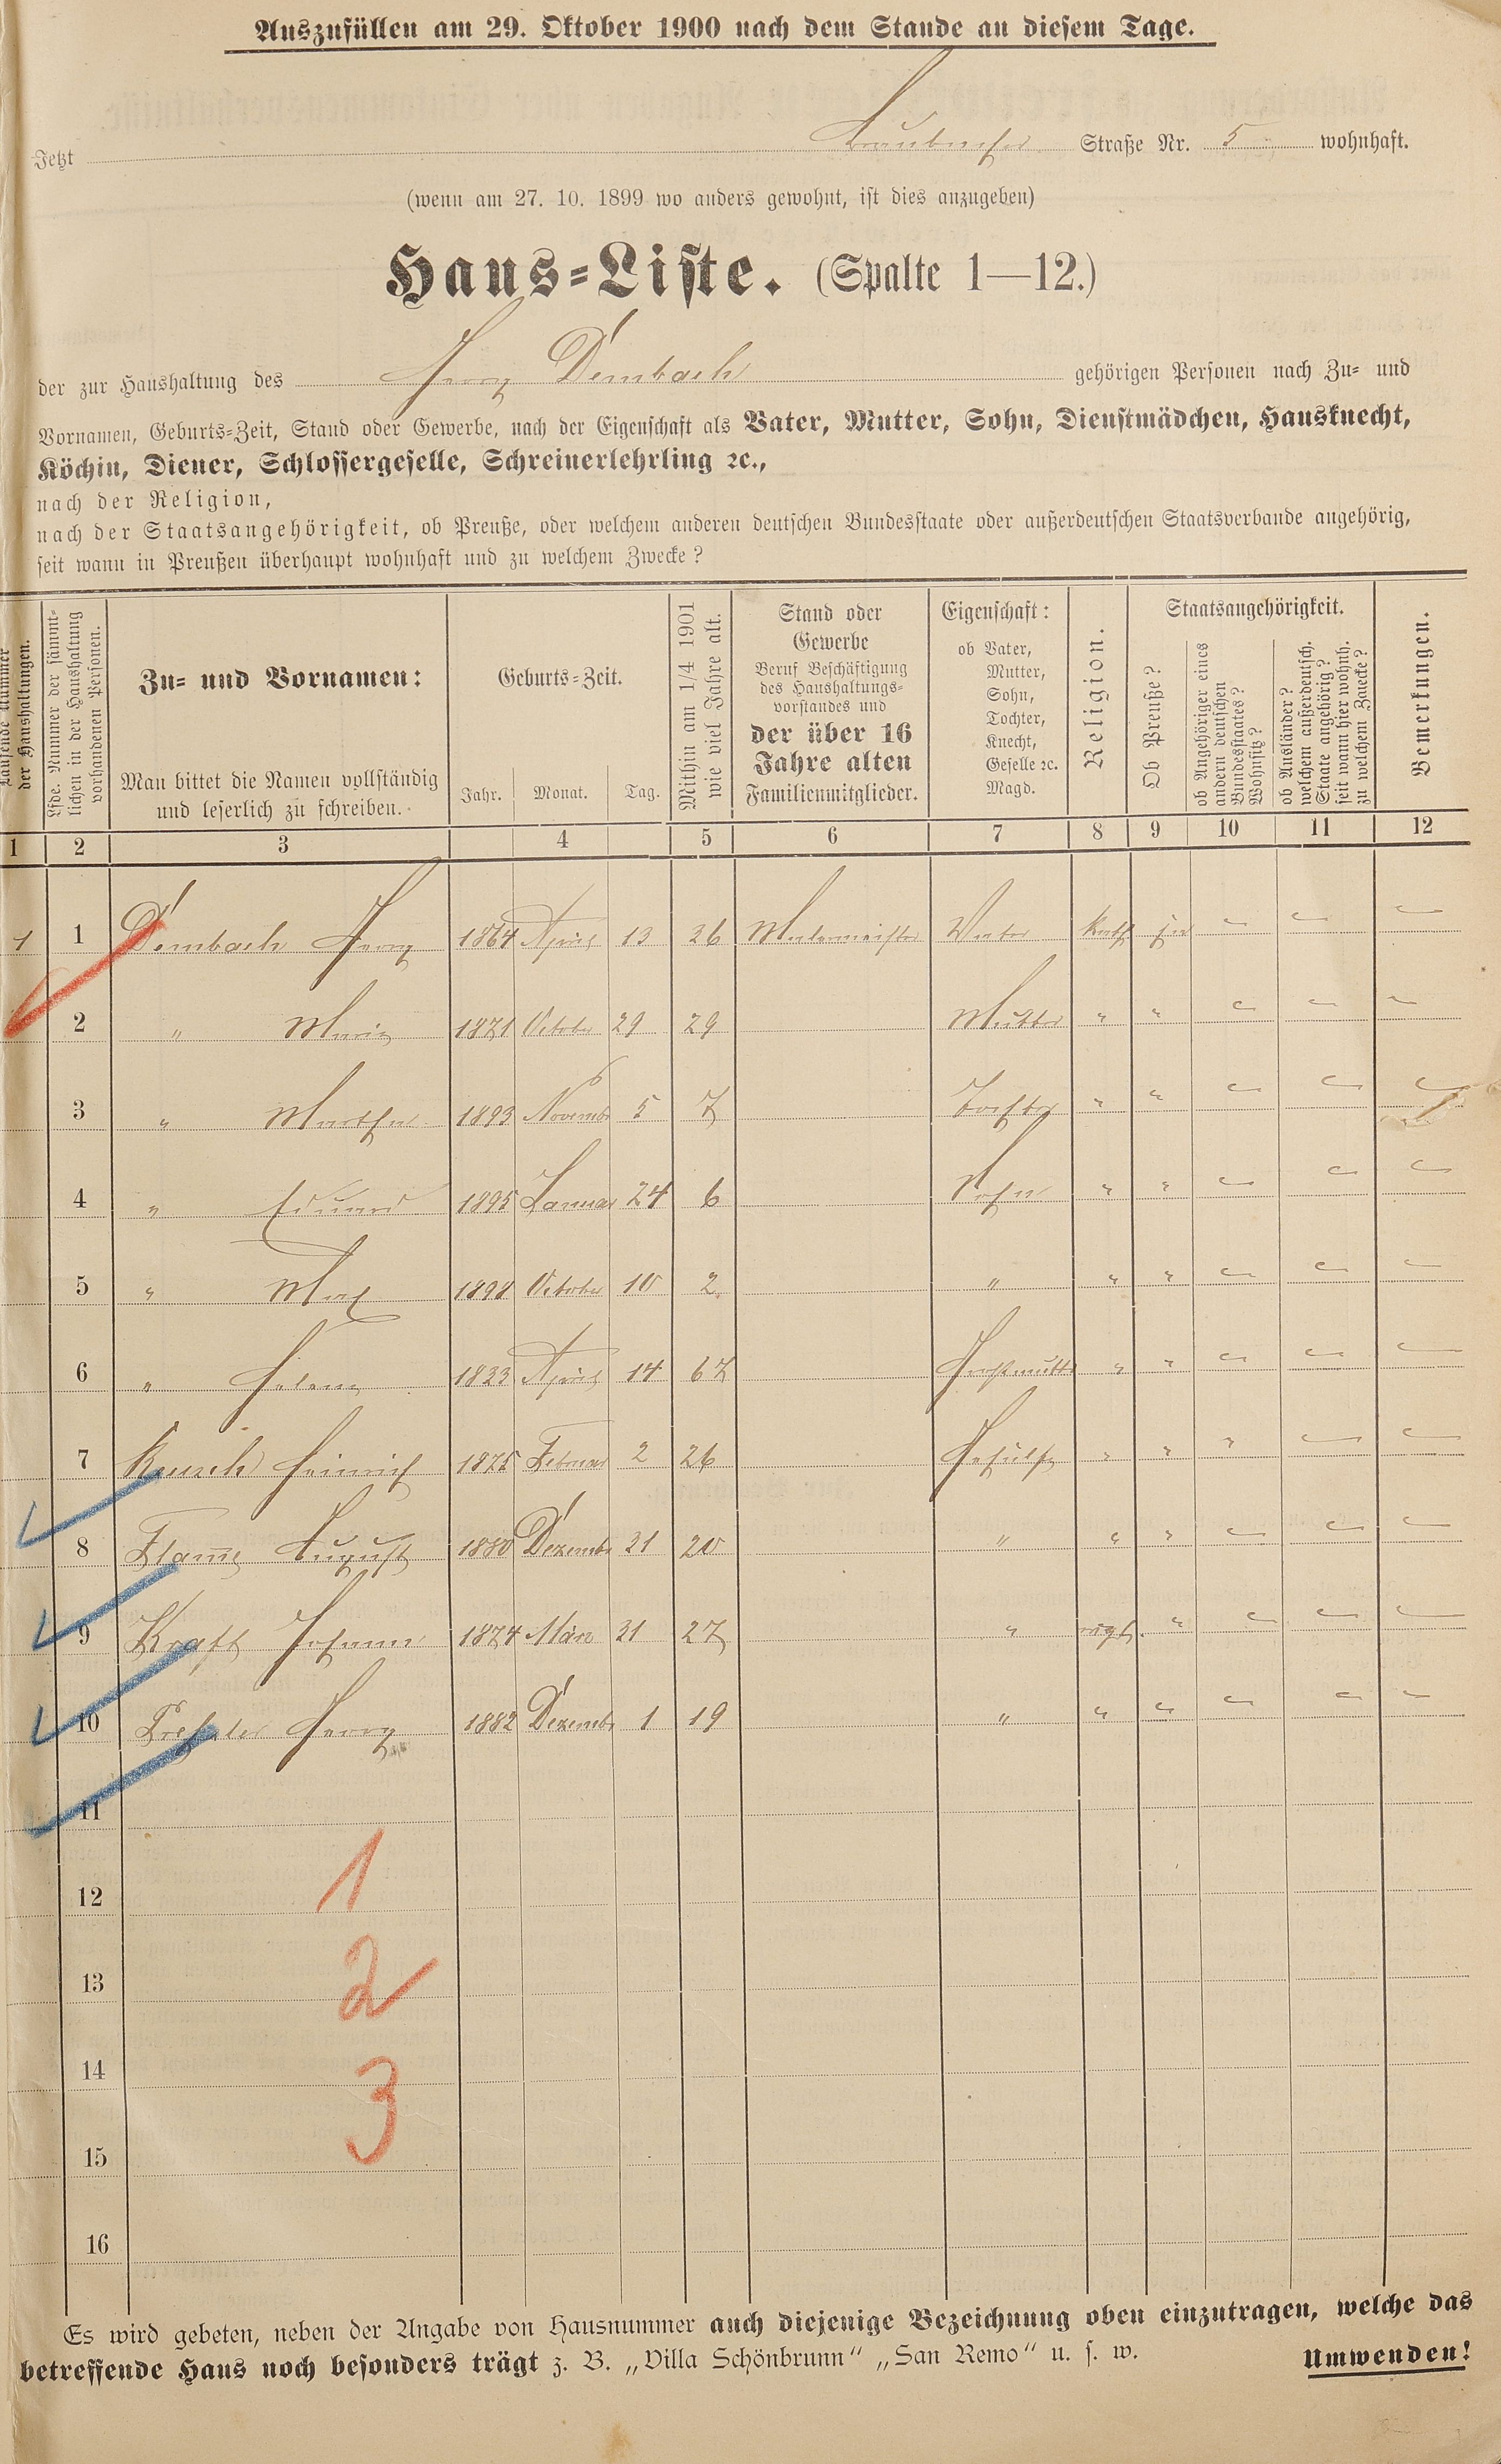 Auszufüllen am 29. Oktober 1900 nach dem Stande an diesem Tage.
Jetzt Straße Nr. 5 wohnhaft.
(wenn am 27. 10. 1899 wo anders gewohnt, ist dies anzugeben)
Haus-Liste. (Spalte 1—12.)
der zur Haushaltung des Georg Dembach gehörigen Personen nach Zu- und
Vornamen, Geburts-Zeit, Stand oder Gewerbe, nach der Eigenschaft als Vater, Mutter, Sohn, Dienstmädchen, Hausknecht,
Köchin, Diener, Schlossergeselle, Schreinerlehrling ꝛc.,
nach der Religion,
nach der Staatsangehörigkeit, ob Preuße, oder welchem anderen deutschen Bundesstaate oder außerdeutschen Staatsverbande angehörig,
seit wann in Preußen überhaupt wohnhaft und zu welchem Zwecke?
Laufende Nummer der Haushaltungen.
Lfde. Nummer der sämmtlichen in der Haushaltung vorhandenen Personen.
Zu- und Vornamen:
Man bittet die Namen vollständig
und leserlich zu schreiben.
Geburts-Zeit.
Jahr. Monat. Tag.
Mithin am 1/4 1901
wie viel Jahre alt.
Stand oder
Gewerbe
Beruf Beschäftigung
des Haushaltungs-
vorstandes und
der über 16
Jahre alten
Familienmitglieder.
Eigenschaft:
ob Vater,
Mutter,
Sohn,
Tochter,
Knecht,
Geselle ꝛc.
Magd.
Religion.
Staatsangehörigkeit.
Ob Preuße?
ob Angehöriger eines
andern deutschen
Bundesstaates?
Wohnsitz?
ob Ausländer?
welchem außerdeutsch.
Staate angehörig?
seit wann hier wohnh.
zu welchem Zwecke?
Bemerkungen.
1 2 3 4 5 6 7 8 9 10 11 12
1 1 Dembach Georg 1864 April 13 36 Malermeister Vater kath ja — — —
2 " Maria 1871 October 29 29 Mutter " " — — —
3 " Martha 1893 November 5 7 Tochter " " — — —
4 " Eduard 1895 Januar 24 6 Sohn " " — — —
5 " Max 1898 October 10 2 " " " — — —
6 " Helena 1833 April 14 67 Großmutter " " — — —
7 Rausch Heinrich 1875 Februar 2 26 Gehülfe " " " — —
8 Flamme August 1880 Dezember 31 20 " " " — — —
9 Kraft Johann 1874 März 31 27 " evgl. " — — —
10 Georg 1882 Dezember 1 19 " " " — — —
11
12 1
13 2
14 3
15
16
Es wird gebeten, neben der Angabe von Hausnummer auch diejenige Bezeichnung oben einzutragen, welche das
betreffende Haus noch besonders trägt z. B. „Villa Schönbrunn“ „San Remo“ u. s. w. Umwenden!